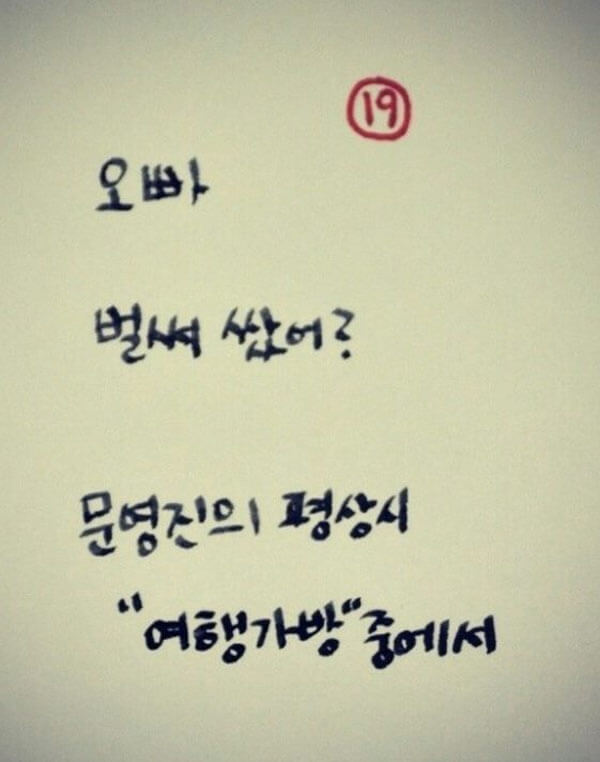 19
오빠
벌써 쌌어?
문영진의 평상시
"여행가방"중에서